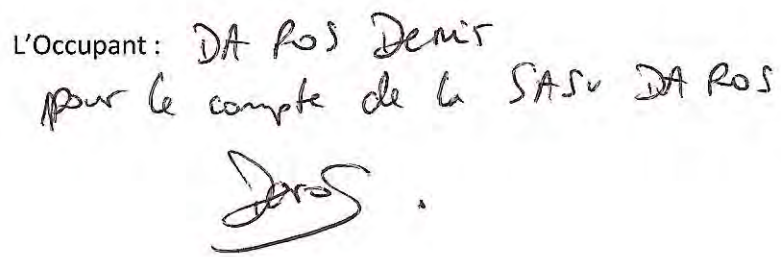 L'Occupant : DA ROS Denis
pour le compte de la SASU DA ROS
Daros.